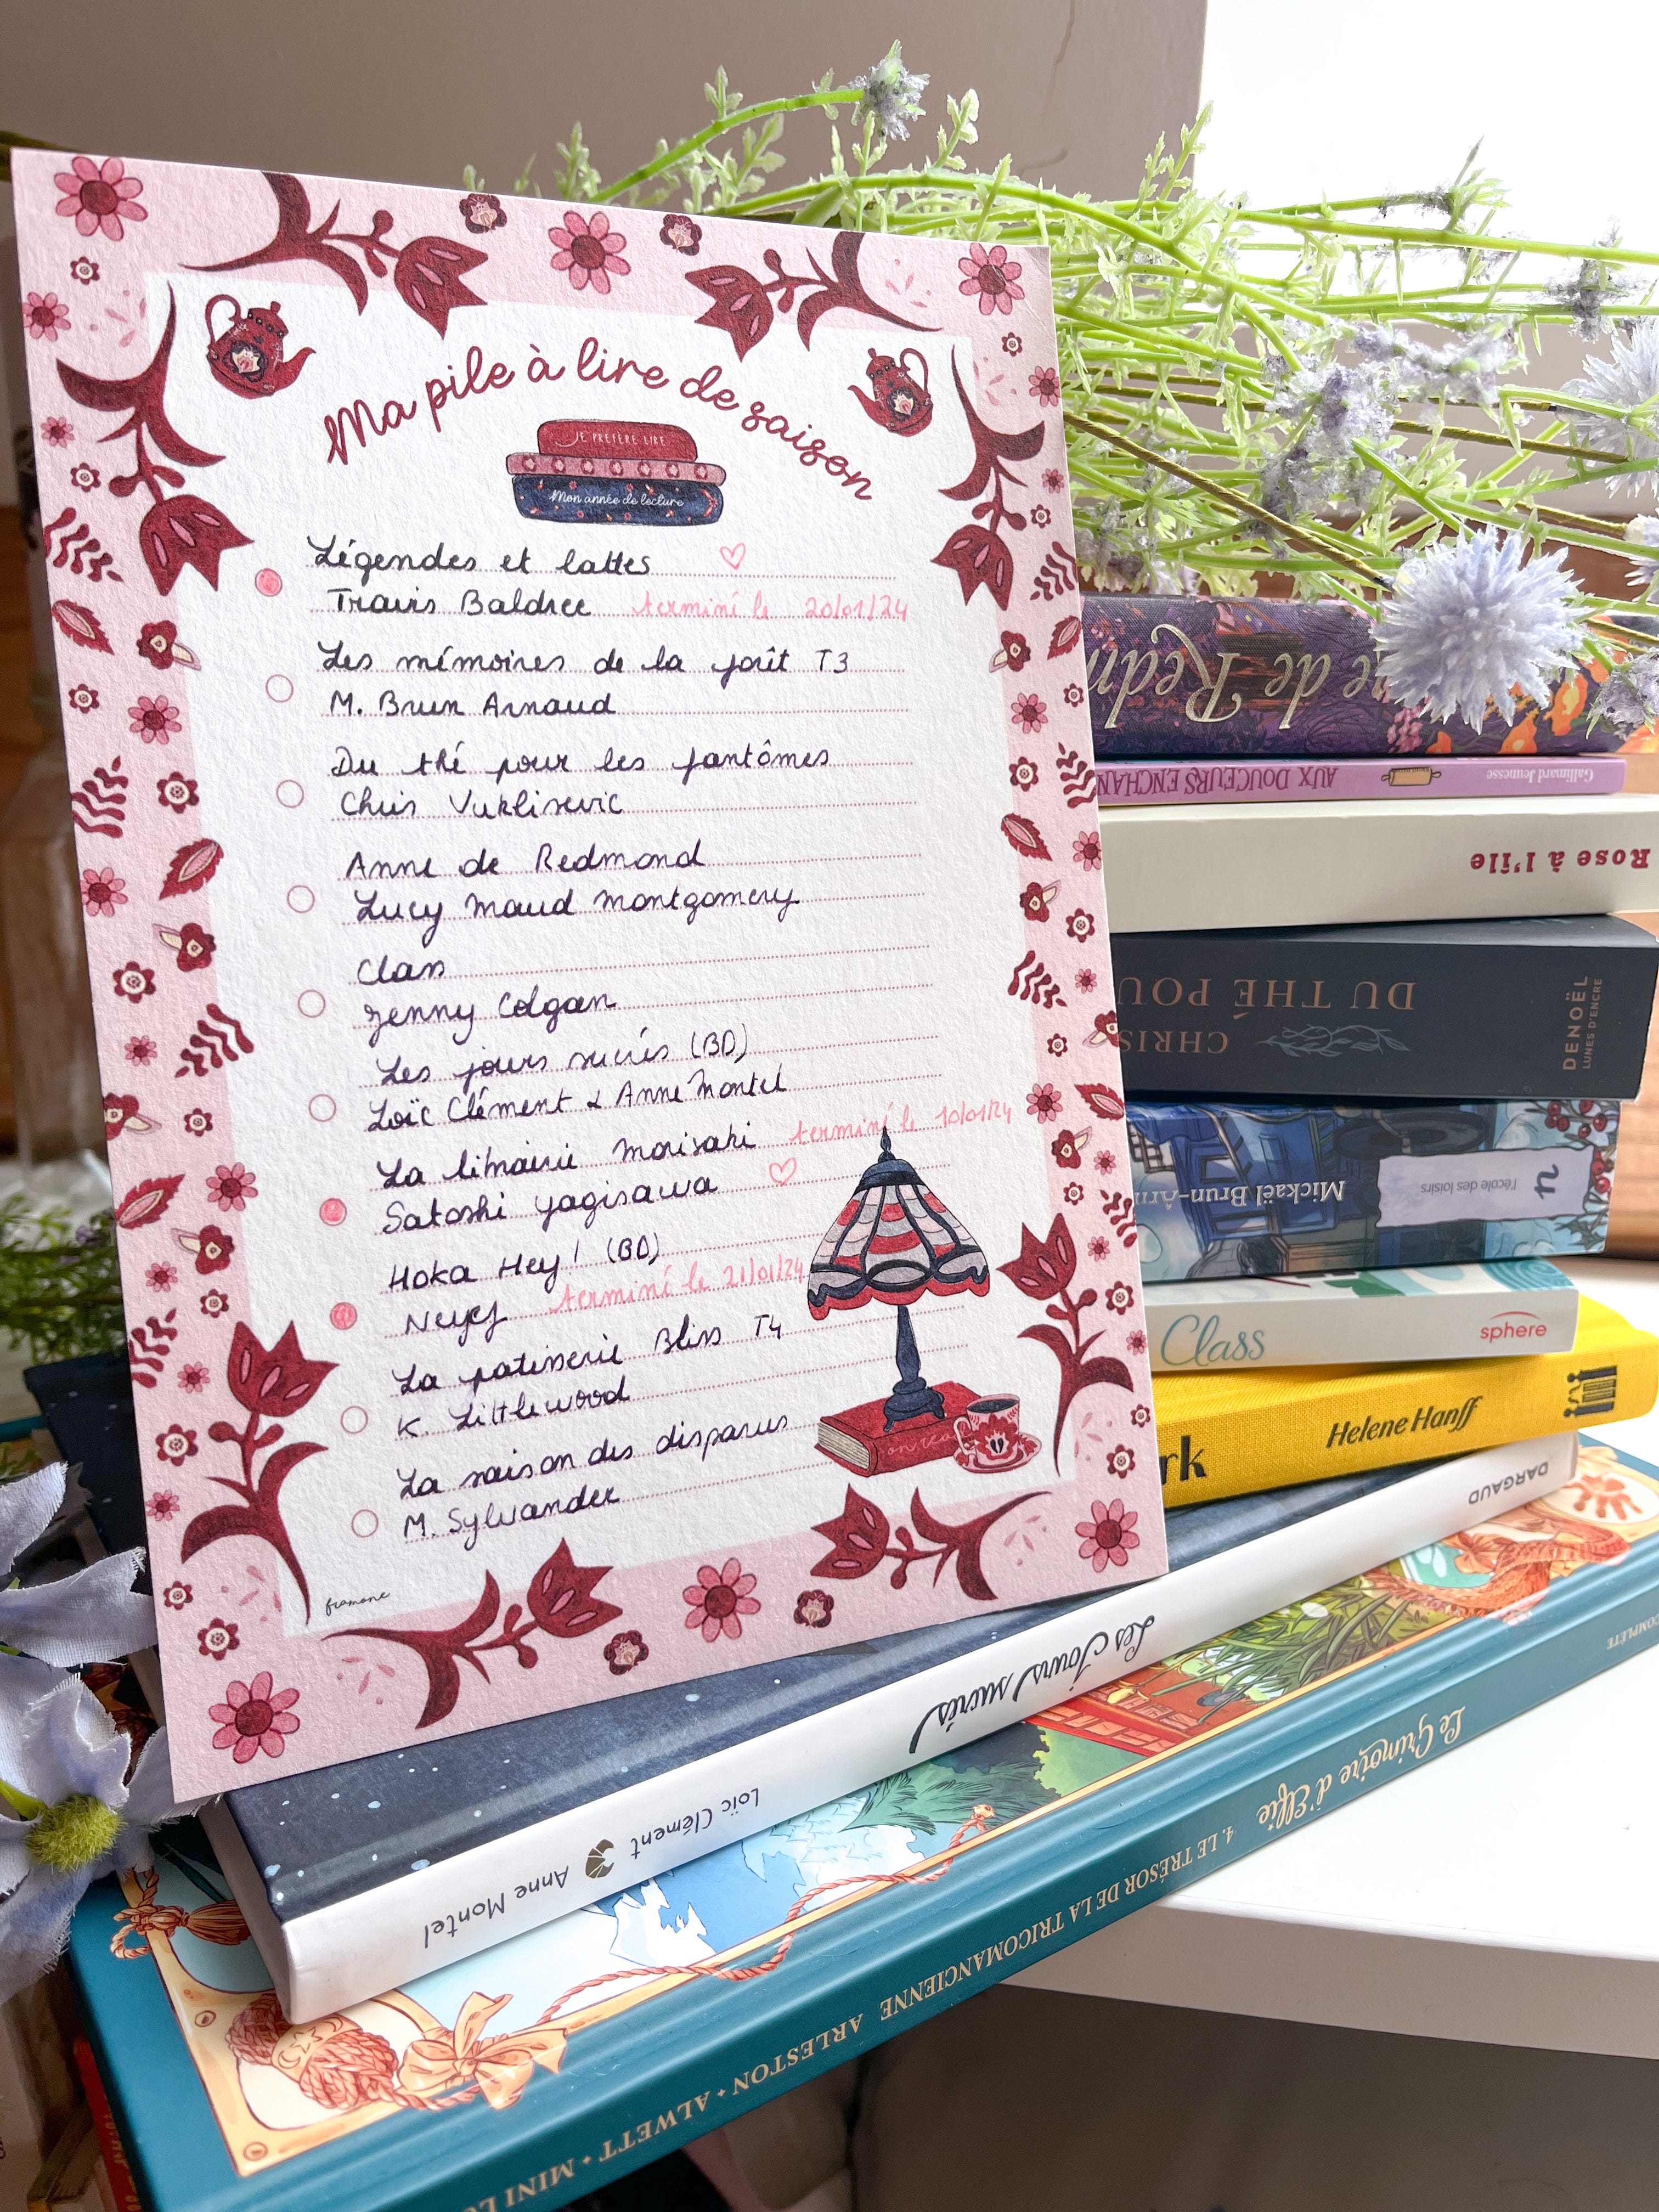 Ma pile à lire de saison
JE PRÉFÈRE LIRE
Mon année de lecture
Légendes et lattes
Travis Baldree terminé le 20/01/24
Les mémoires de la forêt T3
M. Brun Arnaud
Du thé pour les fantômes
Chris Vuklisevic
Anne de Redmond
Lucy Maud Montgomery
Class
Jenny Colgan
Les jours sucrés (BD)
Loïc Clément & Anne Montel
La librairie Morisaki terminé le 10/01/24
Satoshi Yagisawa
Hoka Hey! (BD)
Neyef terminé le 21/01/24
La patisserie Bliss T4
K. Littlewood
La saison des disparus
M. Sylvander
framone
de Redm
AUX DOUCEURS ENCHAN
Gallimard Jeunesse
Rose à l'île
DU THÉ POU
CHRIS
DENOËL
LUNES D'ENCRE
Mickaël Brun-Arn
l'école des loisirs
n
Class
sphere
rk
Helene Hanff
DARGAUD
Les Jours sucrés
Loïc Clément
Anne Montel
Le Grimoire d'Elfie
4. LE TRÉSOR DE LA TRICOMANCIENNE
ARLESTON • ALWETT • MINI